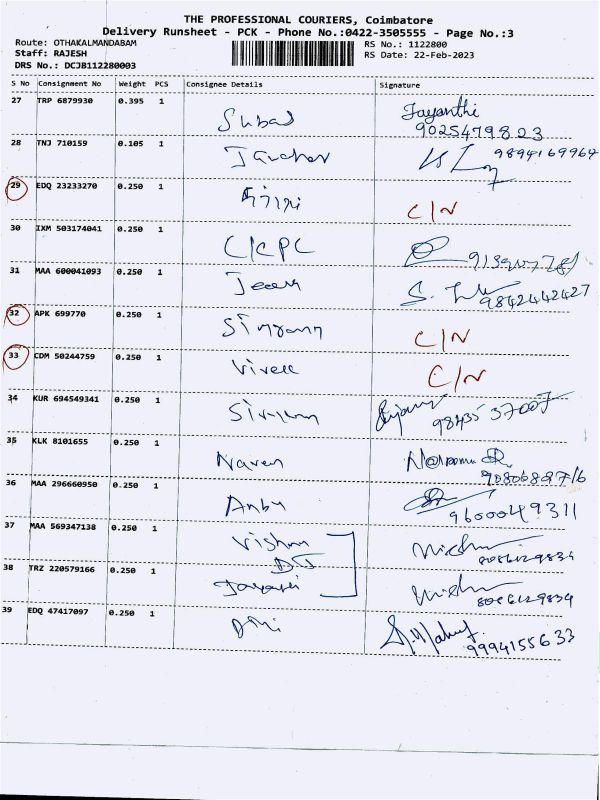 THE PROFESSIONAL COURIERS, Coimbatore
Delivery Runsheet - PCK - Phone No.:0422-3505555 - Page No.:3
Route: OTHAKALMANDABAM
RS No.: 1122800
Staff: RAJESH
RS Date: 22-Feb-2023
DRS No.: DCJB112280003
S No Consignment No Weight PCS Consignee Details Signature
27 TRP 6879930 0.395 1 Jayanthi
9025479823
28 TNJ 710159 0.105 1 9894169964
29 EDQ 23233270 0.250 1 C/N
30 IXM 503174041 0.250 1 C/CPC
31 MAA 600041093 0.250 1 9842442427
32 APK 699770 0.250 1 C/N
33 CDM 50244759 0.250 1 Vivek C/N
34 KUR 694549341 0.250 1
35 KLK 8101655 0.250 1 Naven
36 MAA 296660950 0.250 1 Anbu 9600049311
37 MAA 569347138 0.250 1 Vishnu
8086129834
38 TRZ 220579166 0.250 1
8086129834
39 EDQ 47417097 0.250 1
9994155633